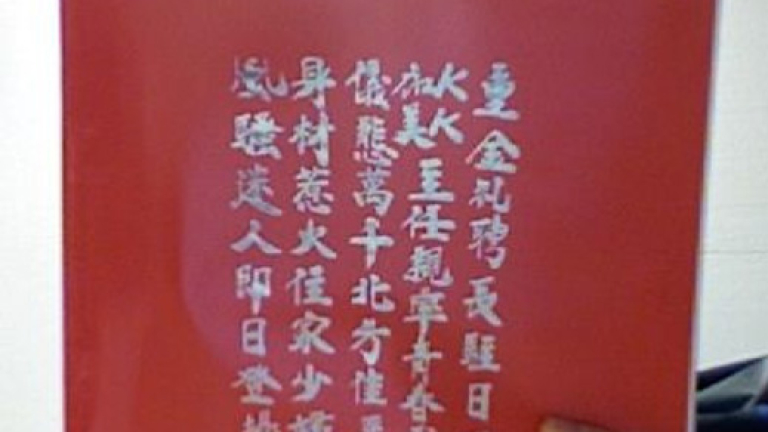 重金礼聘長駐日
KK
美主任親率青春
儀態萬千北方佳
身材惹火住家少
風騷迷人即日登